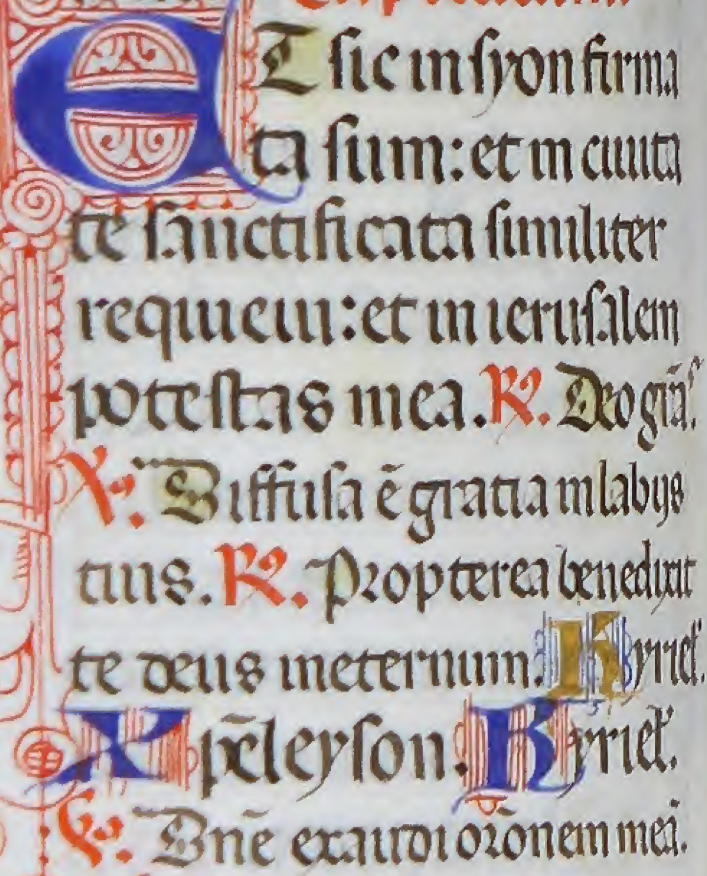 ET sic in syon firma
ta sum: et in ciuita
te sanctificata similiter
requieui: et in ierusalem
potestas mea. R. Deo grãs.
V. Diffusa ẽ gratia in labijs
tuis. R. Propterea benedixit
te deus in eternum. Kyriel'.
Xp̃eleyson. Kyriel'.
V. Dñe exaudi orõnem meã.